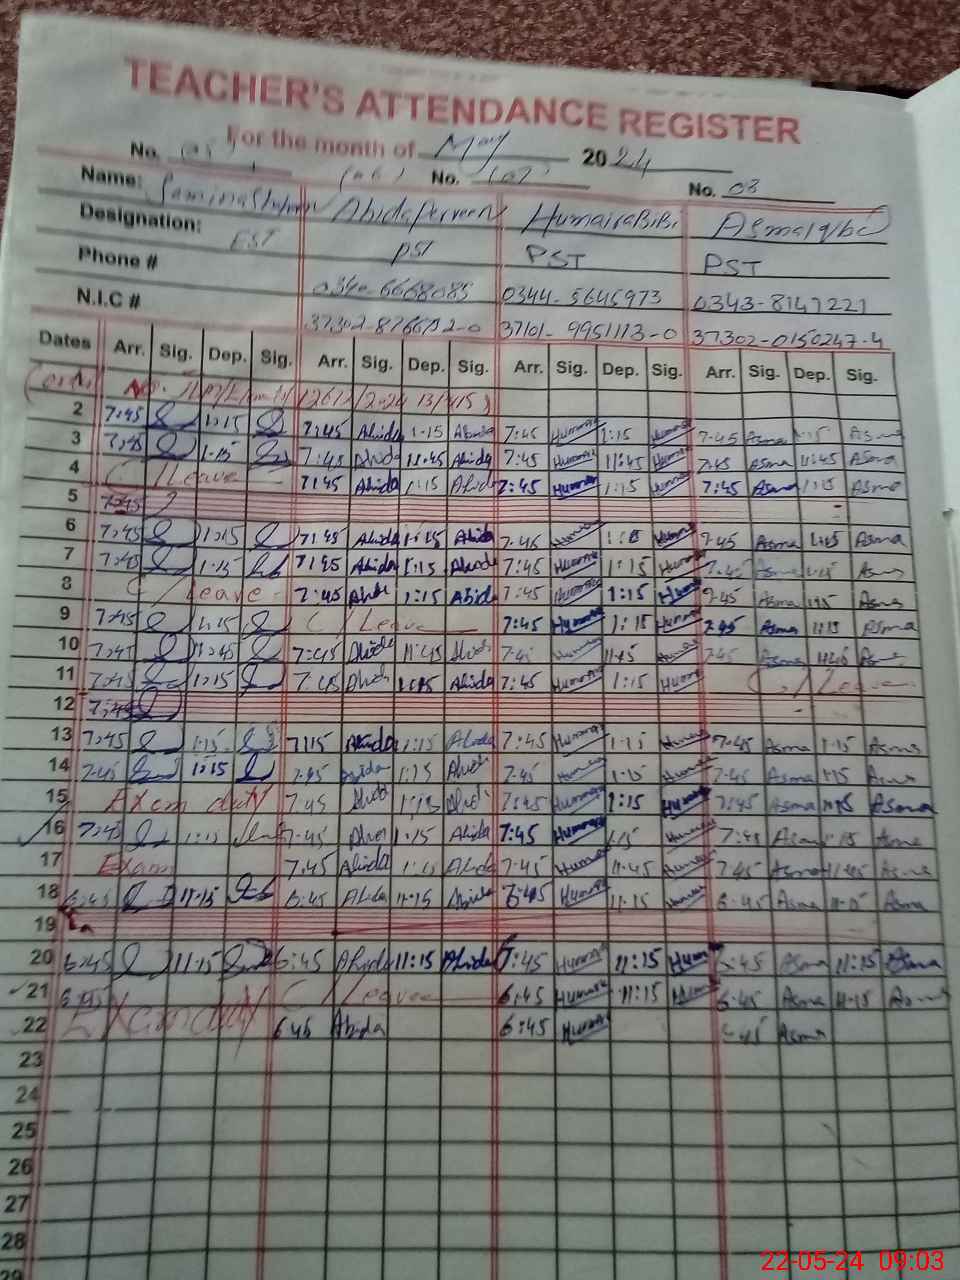 TEACHER'S ATTENDANCE REGISTER
For the month of May 2024
No. No. No. 08
Name: Abida Perveen Humaira BiBi Asma Iqbal
Designation: EST PST PST PST
Phone # 0344-5645973 0343-8147221
N.I.C # 37101-9951113-0 37302-0150247-4
Dates Arr. Sig. Dep. Sig. Arr. Sig. Dep. Sig. Arr. Sig. Dep. Sig. Arr. Sig. Dep. Sig.
2 7:45 1:15 7:45 Abida 1:15 Abida 7:45 Humaira 1:15 Humaira 7:45 Asma 1:15 Asma
3 7:45 1:15 7:45 Abida 11:45 Abida 7:45 Humaira 11:45 Humaira 7:45 Asma 11:45 Asma
4 C/Leave 7:45 Abida 1:15 Abida 7:45 Humaira 1:15 Humaira 7:45 Asma 1:15 Asma
5 7:45
6 7:45 1:15 7:45 Abida 1:15 Abida 7:45 Humaira 1:15 Humaira 7:45 Asma 1:15 Asma
7 7:45 1:15 7:45 Abida 1:15 Abida 7:45 Humaira 1:15 Humaira 7:45 Asma 1:15 Asma
8 C/Leave 7:45 Abida 1:15 Abida 7:45 Humaira 1:15 Humaira 7:45 Asma 1:15 Asma
9 7:45 1:15 C/Leave 7:45 Humaira 1:15 Humaira 7:45 Asma 1:15 Asma
10 7:45 11:45 7:45 Abida 11:45 Abida 7:45 Humaira 11:45 Humaira 7:45 Asma 11:45 Asma
11 7:45 1:15 7:45 Abida 1:15 Abida 7:45 Humaira 1:15 Humaira C/Leave
12 7:45
13 7:45 1:15 7:15 Abida 1:15 Abida 7:45 Humaira 1:15 Humaira 7:45 Asma 1:15 Asma
14 7:45 1:15 7:45 Abida 1:15 Abida 7:45 Humaira 1:15 Humaira 7:45 Asma 1:15 Asma
15 Exam duty 7:45 Abida 1:15 Abida 7:45 Humaira 1:15 Humaira 7:45 Asma 1:15 Asma
16 7:45 1:15 7:45 Abida 1:15 Abida 7:45 Humaira 1:15 Humaira 7:45 Asma 1:15 Asma
17 Exam 7:45 Abida Abida 7:45 Humaira 11:45 Humaira 7:45 Asma 11:45 Asma
18 6:45 11:15 6:45 Abida 11:15 Abida 6:45 Humaira 11:15 Humaira 6:45 Asma 11:15 Asma
19
20 6:45 11:15 6:45 Abida 11:15 Abida 6:45 Humaira 11:15 Humaira 6:45 Asma 11:15 Asma
21 6:45 C/Leave 6:45 Humaira 11:15 Humaira 6:45 Asma 11:15 Asma
22 Exam duty 6:45 Abida 6:45 Humaira 6:45 Asma
23
24
25
26
27
28
29
22-05-24 09:03